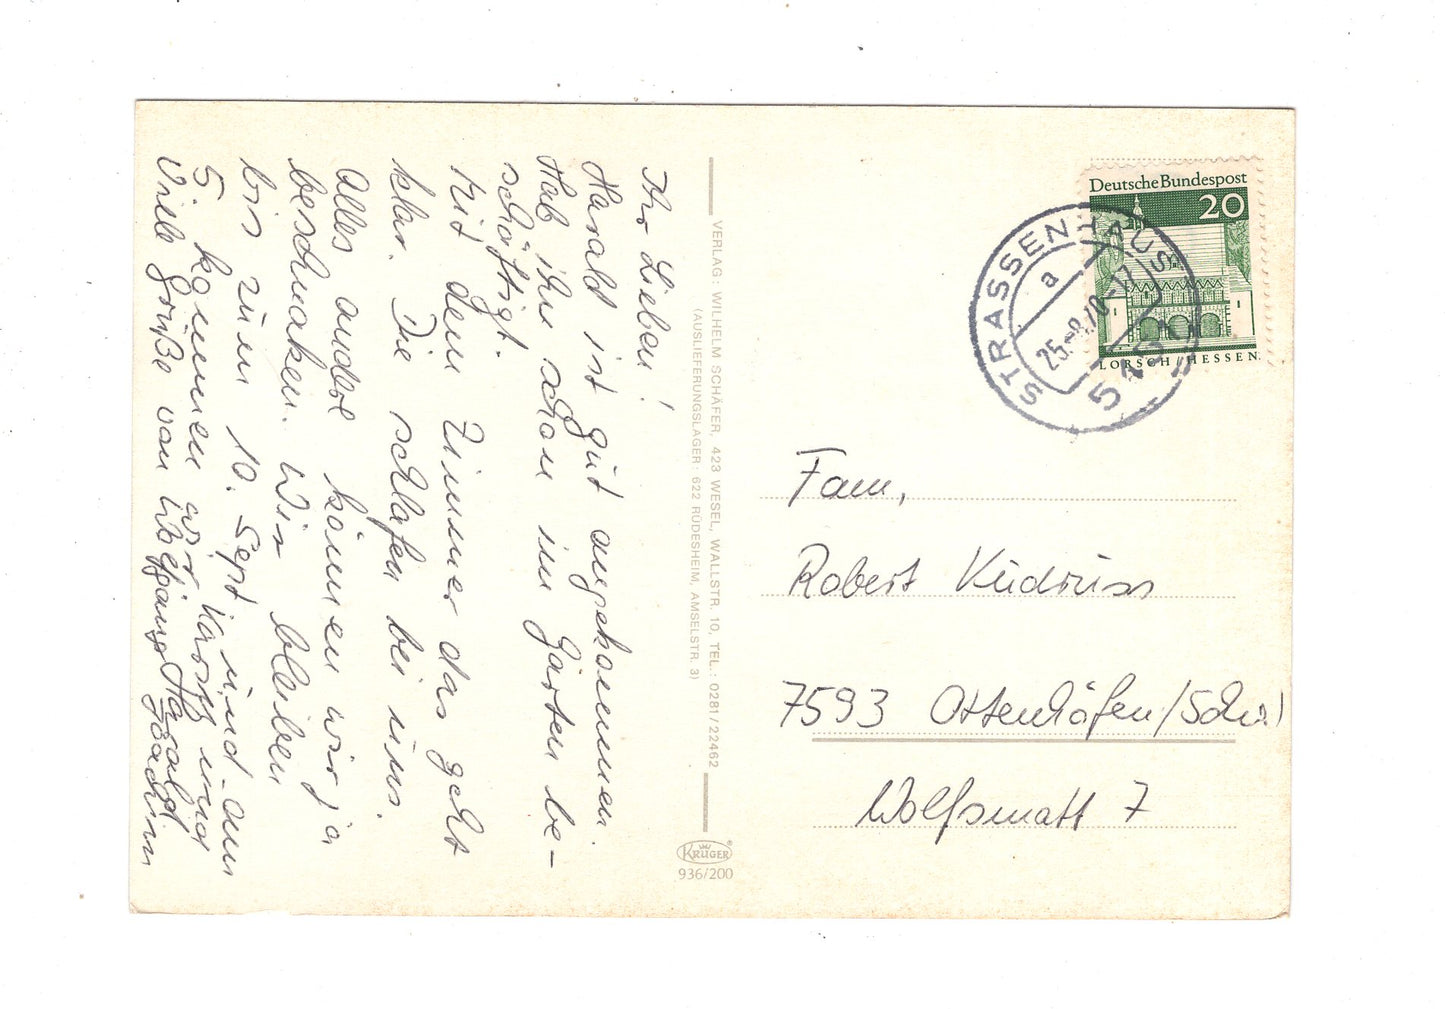 Ihr Lieben!
Harald ist gut angekommen.
Hab ihn schon im Garten be-
schäftigt.
Mit dem Zimmer das geht
klar. Die schlafen bei uns.
Alles andre können wir ja
beschnaken. Wir bleiben
bis zum 10. Sept und am
5 kommen wir und
Viele Grüße von Wolfgang Harald
Joachim
VERLAG: WILHELM SCHÄFER, 423 WESEL, WALLSTR. 10, TEL.: 0281/22462
(AUSLIEFERUNGSLAGER: 622 RÜDESHEIM, AMSELSTR. 3)
KRÜGER
936/200
Deutsche Bundespost
20
LORSCH/HESSEN
STRASSENHAUS
a
25.-8.70-17
Fam,
Robert Kudruss
7593 Ottenhöfen/Schw
Wolfsmatt 7